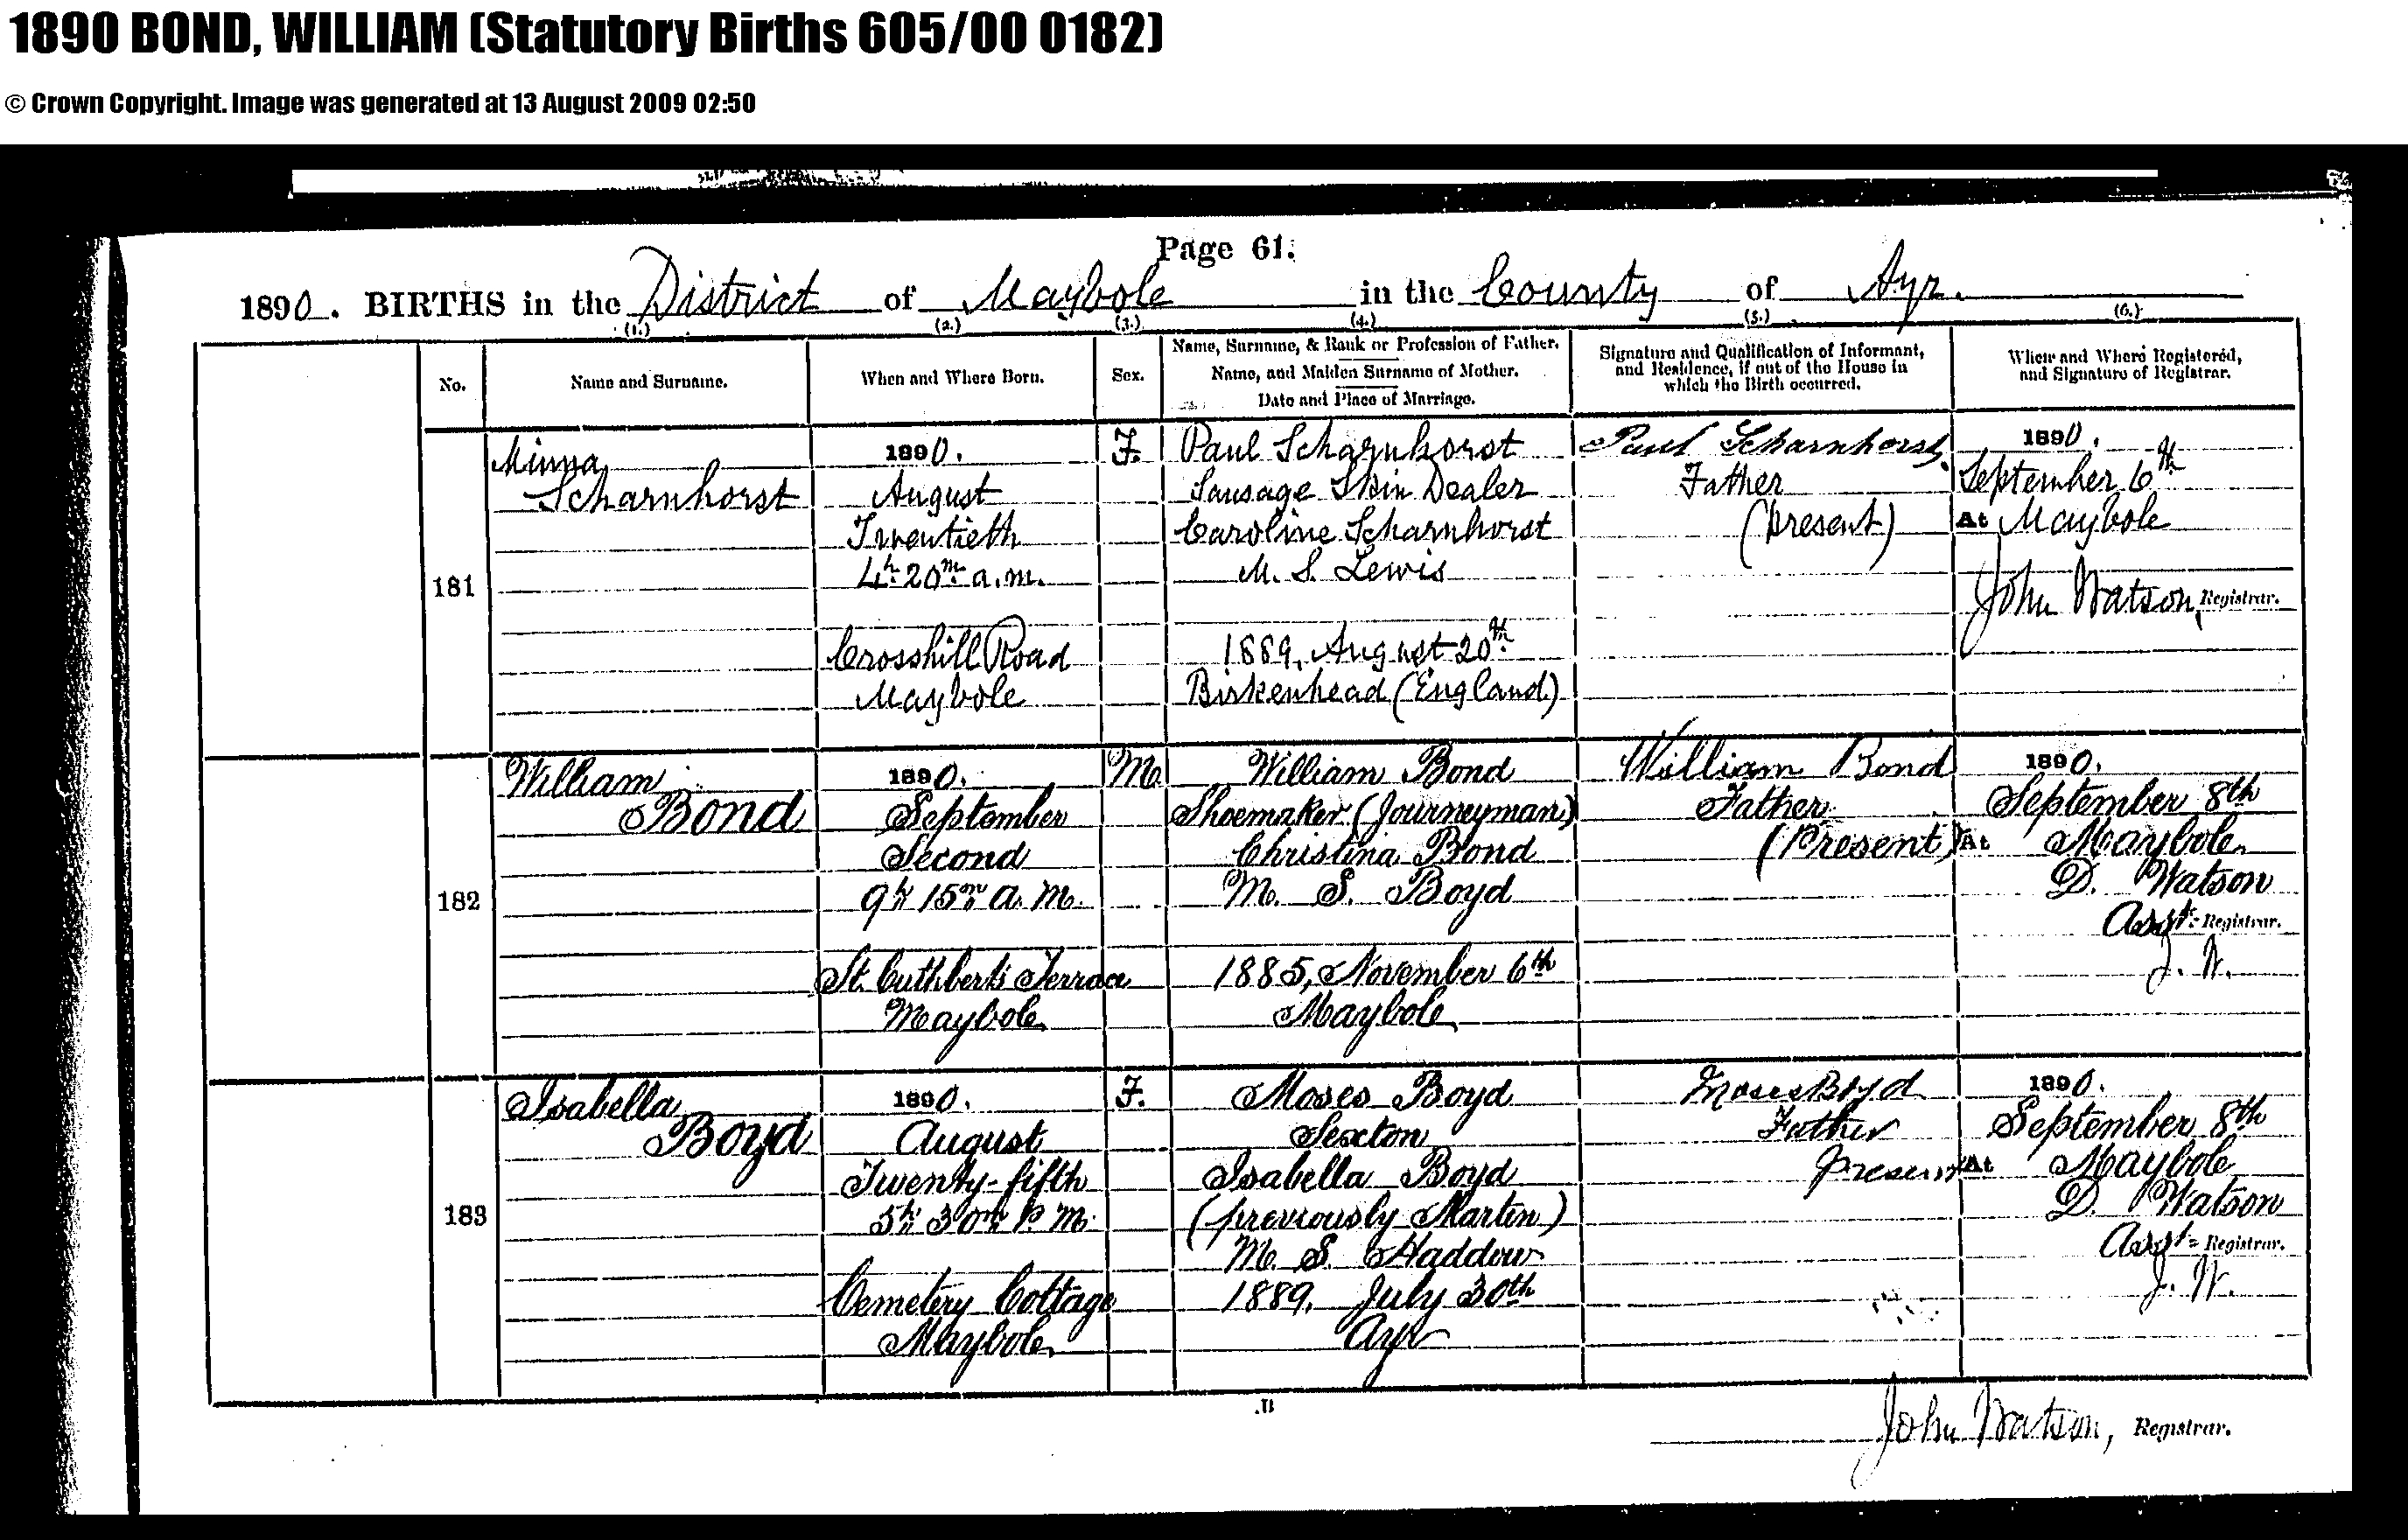 1890 BOND, WILLIAM (Statutory Births 605/00 0182)
© Crown Copyright. Image was generated at 13 August 2009 02:50
Page 61.
1890. BIRTHS in the District of Maybole in the County of Ayr.
(1.) (2.) (3.) (4.) (5.) (6.)
No.
Name and Surname.
When and Where Born.
Sex.
Name, Surname, & Rank or Profession of Father.
Name, and Maiden Surname of Mother.
Date and Place of Marriage.
Signature and Qualification of Informant,
and Residence, if out of the House in
which the Birth occurred.
When and Where Registered,
and Signature of Registrar.
181
Minna
Scharnhorst
1890.
August
Twentieth
4h 20m a.m.
Crosshill Road
Maybole
F.
Paul Scharnhorst
Sausage Skin Dealer
Caroline Scharnhorst
M. S. Lewis
1889, August 20th
Birkenhead (England)
Paul Scharnhorst
Father
(Present)
1890.
September 6th
At Maybole
John Watson, Registrar.
182
William
Bond
1890.
September
Second
9h 15m a. M.
St. Cuthbert's Terrace
Maybole
M.
William Bond
Shoemaker (Journeyman)
Christina Bond
M. S. Boyd
1885, November 6th
Maybole
William Bond
Father
(Present)
1890.
September 8th
At Maybole
D. Watson
Asst. Registrar.
J. W.
183
Isabella
Boyd
1890.
August
Twenty-fifth
5h 30m P. M.
Cemetery Cottage
Maybole
F.
Moses Boyd
Sexton
Isabella Boyd
(previously Martin)
M. S. Haddow
1889, July 30th
Ayr
Moses Boyd
Father
present
1890.
September 8th
At Maybole
D. Watson
Asst. Registrar.
J. W.
John Watson, Registrar.